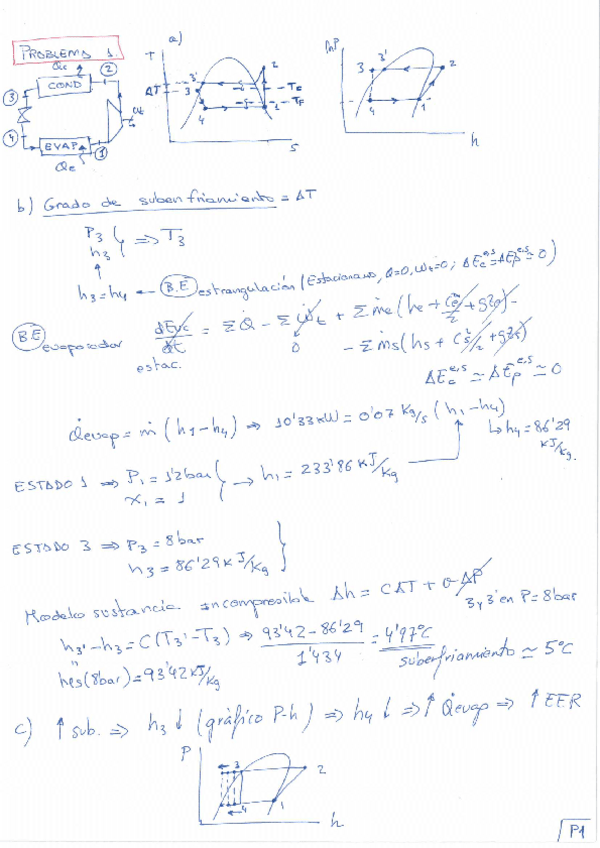 PROBLEMA 1.
a)
Q̇c
②
COND
③
④
EVAP
①
Q̇e
T
ΔT
3'
3
4
2
1
Tc
TF
s
lnP
3
3'
2
4
1
h
b) Grado de subenfriamiento = ΔT
P3
h3
} => T3
h3=h4 ← B.E estrangulación (Estacionario, Q=0, Ẇt=0; ΔEc^e,s ≃ ΔEp^e,s ≃ 0)
B.E evaporador dEvc/dt = ΣQ̇ - ΣẆt + Σṁe(he + Ce²/2 + gze) -
estac.
0
- Σṁs(hs + Cs²/2 + gzs)
ΔEc^e,s ≃ ΔEp^e,s ≃ 0
Q̇evap = ṁ (h1-h4) => 10'33 KW = 0'07 Kg/s (h1-h4)
↳ h4 = 86'29 KJ/Kg.
ESTADO 1 => P1 = 1'2bar
x1 = 1
} → h1 = 233'86 KJ/Kg
ESTADO 3 => P3 = 8bar
h3 = 86'29 KJ/Kg
Modelo sustancia incompresible Δh = CΔT + v ΔP
3 y 3' en P = 8bar
h3' - h3 = C(T3' - T3) => 93'42 - 86'29 / 1'434 = 4'97°C
subenfriamiento ≃ 5°C
"
hes(8bar) = 93'42 KJ/Kg
c) ↑ sub. => h3 ↓ (gráfico P-h) => h4 ↓ => ↑ Q̇evap => ↑ EER
P
3
2
4
1
h
P1